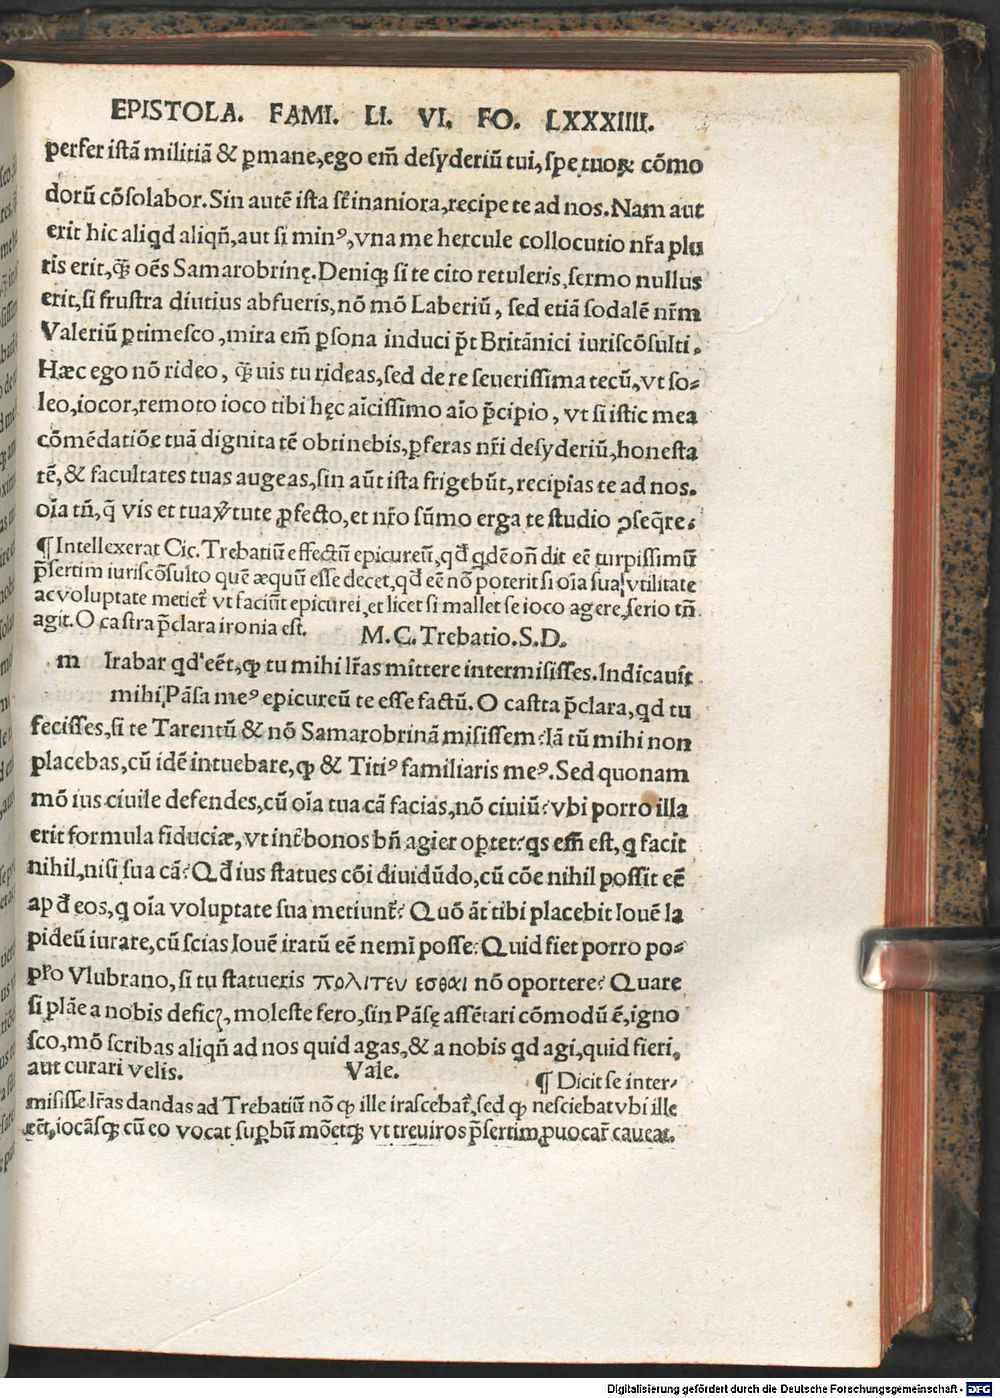 EPISTOLA. FAMI. LI. VI. FO. LXXXIIII.
perfer istā militiā & ꝑmane, ego em̄ desyderiū tui, spe tuoꝝ cōmo
dorū cōsolabor. Sin autē ista sūt inaniora, recipe te ad nos. Nam aut
erit hic aliqd aliqñ, aut si minꝰ, vna me hercule collocutio nr̄a plu
ris erit, q̄ȝ oēs Samarobrinę. Deniqꝫ si te cito retuleris, sermo nullus
erit, si frustra diutius abfueris, nō mō Laberiū, sed etiā sodalē nr̄m
Valeriū ꝑtimesco, mira em̄ ꝑsona induci pt̄ Britānici iuriscōsulti.
Hæc ego nō rideo, q̄ȝuis tu rideas, sed de re seuerissima tecū, vt so⸗
leo, iocor, remoto ioco tibi hęc aīcissimo aīo p̄cipio, vt si istic mea
cōmēdatiōe tuā dignitatē obtinebis, ꝑferas nr̄i desyderiū, honesta
tē, & facultates tuas augeas, sin aūt ista frigebūt, recipias te ad nos.
oīa tn̄, q̄ vis et tua ꝟtute ꝓfecto, et nr̄o sūmo erga te studio ꝯseq̄re.
¶ Intellexerat Cic. Trebatiū effectū epicureū, qd̄ qdē on̄dit eē turpissimū
p̄sertim iuriscōsulto quē æquū esse decet, qd̄ eē nō poterit si oīa sua vtilitate
ac voluptate metiet᷑ vt faciūt epicurei, et licet si mallet se ioco agere, serio tn̄
agit. O castra p̄clara ironia est. M. C. Trebatio. S. D.
m Irabar qd' eēt, ꝙ tu mihi lr̄as mittere intermisisses. Indicauit
mihi Pāsa meꝰ epicureū te esse factū. O castra p̄clara, qd tu
fecisses, si te Tarentū & nō Samarobrinā misissem? Iā tū mihi non
placebas, cū idē intuebare, ꝙ & Titiꝰ familiaris meꝰ. Sed quonam
mō ius ciuile defendes, cū oīa tua cā facias, nō ciuiū? vbi porro illa
erit formula fiduciæ, vt int̄ bonos bn̄ agier oꝑtet? qs em̄ est, q facit
nihil, nisi sua cā? Qd̄ ius statues cōi diuidūdo, cū cōe nihil possit eē
apd̄ eos, q oīa voluptate sua metiunt᷑? Quō āt tibi placebit Iouē la
pideū iurare, cū scias Iouē iratū eē nemī posse? Quid fiet porro po⸗
pl̄o Vlubrano, si tu statueris πολιτευ εσθαι nō oportere? Quare
si plāe a nobis deficꝭ, moleste fero, sin Pāsę assētari cōmodū ē, igno
sco, mō scribas aliqñ ad nos quid agas, & a nobis qd agi, quid fieri,
aut curari velis. Vale. ¶ Dicit se inter⸗
misisse lr̄as dandas ad Trebatiū nō ꝙ ille irascebat᷑, sed ꝙ nesciebat vbi ille
eēt, iocāsqꝫ cū eo vocat suꝑbū mōetqꝫ vt treuiros p̄sertim ꝓuocar̄ caueat.
Digitalisierung gefördert durch die Deutsche Forschungsgemeinschaft - DFG